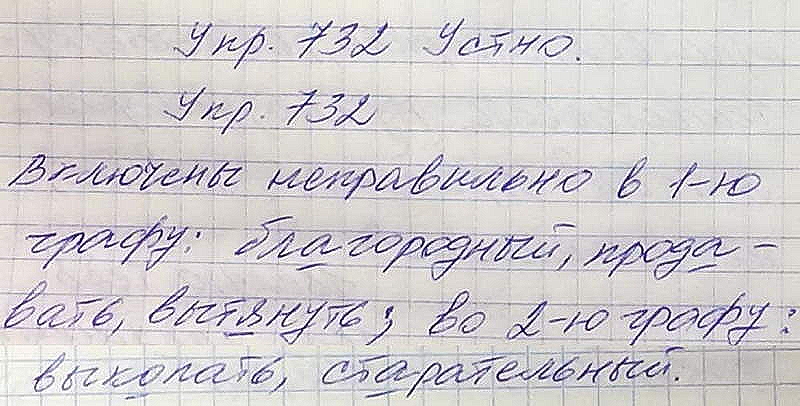 Упр. 732 Устно.
Упр. 732
Включены неправильно в 1-ю
графу: благородный, прода-
вать, вытянуть; во 2-ю графу:
выкопать, старательный.